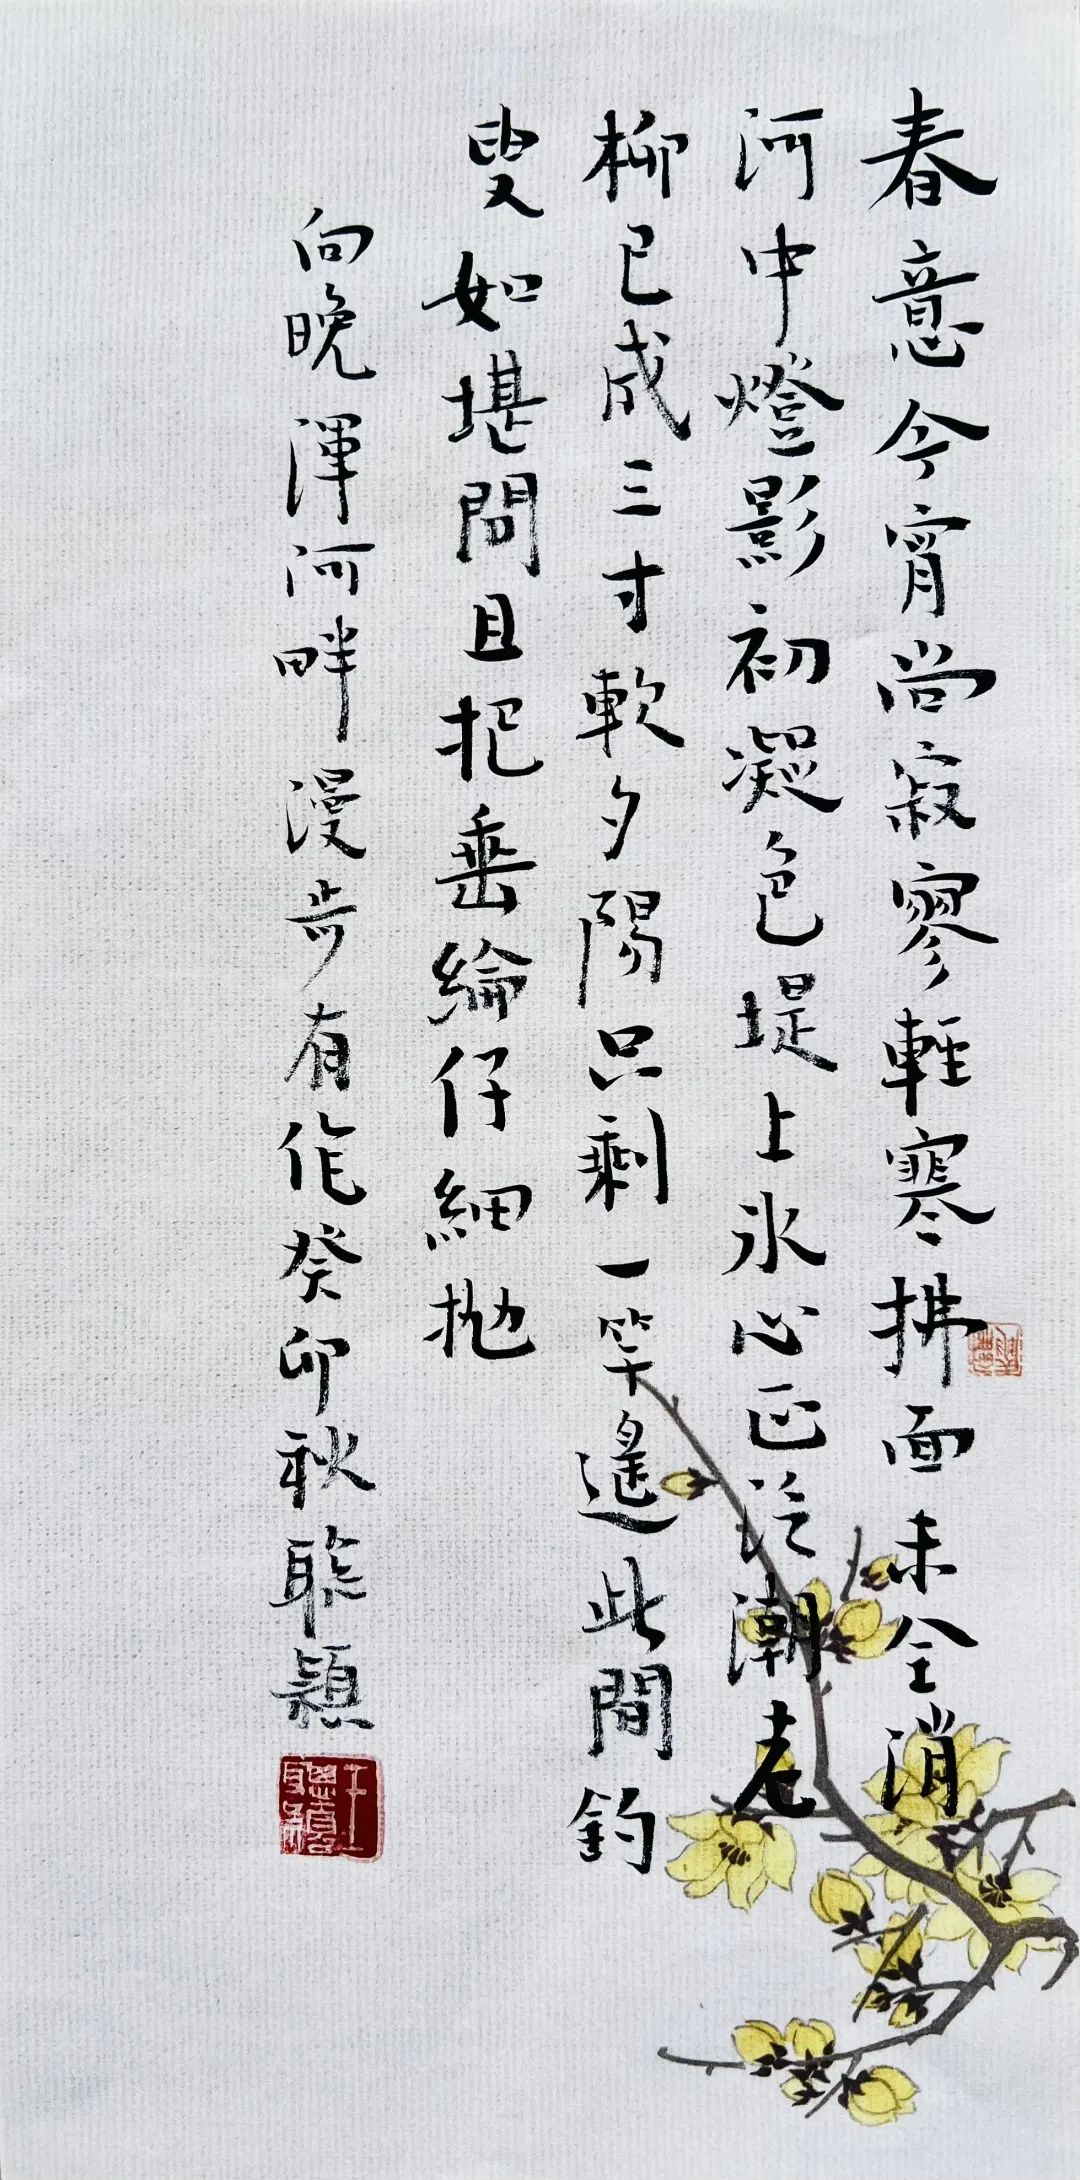 春意今宵尚寂寥輕寒拂面未全消
河中燈影初凝色堤上冰心正泛潮老
柳已成三寸軟夕陽只剩一竿遙此間釣
叟如堪問且把垂綸仔細拋
向晚渾河畔漫步有作癸卯秋聆穎